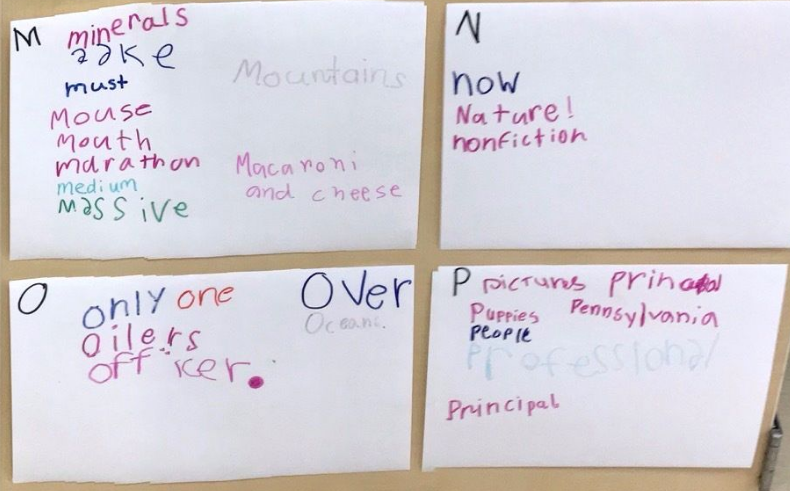 M
minerals
must
Mouse
Mouth
marathon
medium
Massive
Mountains
Macaroni
and cheese
N
now
Nature!
nonfiction
O
only one
Oilers
officer.
Over
P pictures
Puppies Pennsylvania
PeoPle
Professional
Principal